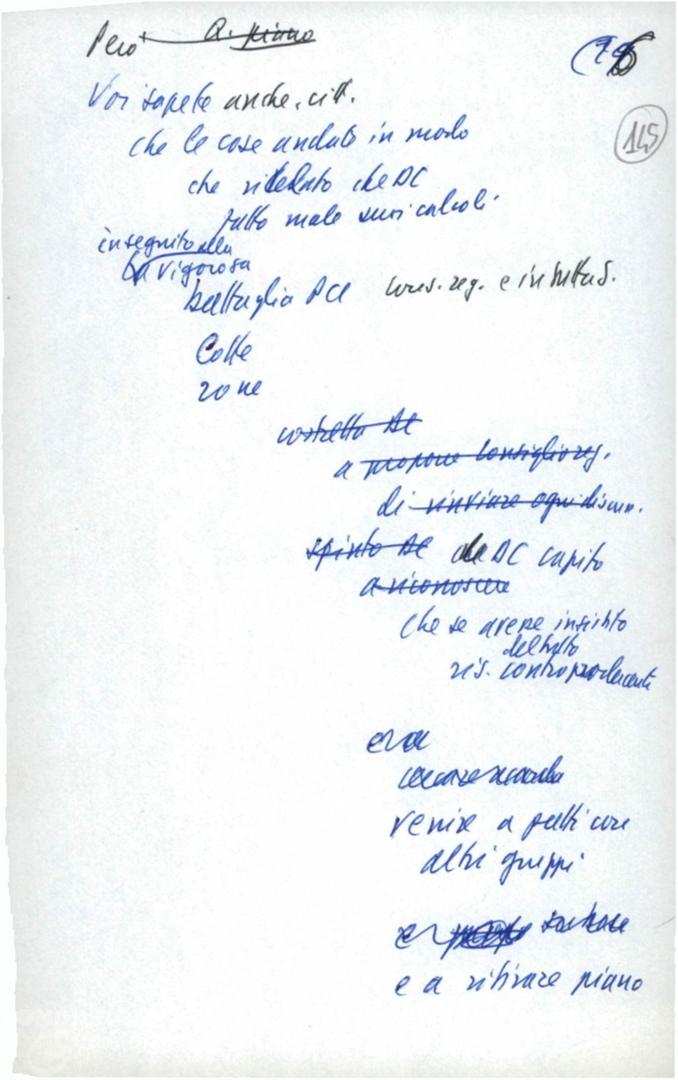 Però A. piano
145
Voi sapete anche, citt.
che le cose andate in modo
che rivelato che DC
fatto male suoi calcoli
in seguito alla
la vigorosa
battaglia PCI cons. reg. e in tutta S.
Colte
zone
costretta DC
a proporre Consiglio reg.
di rinviare ogni discuss.
spinto DC che DC capito
a riconoscere
che se avesse insistito
del tutto
ris. controproducente
era
venire a patti con
altri gruppi
e
e a ritirare piano